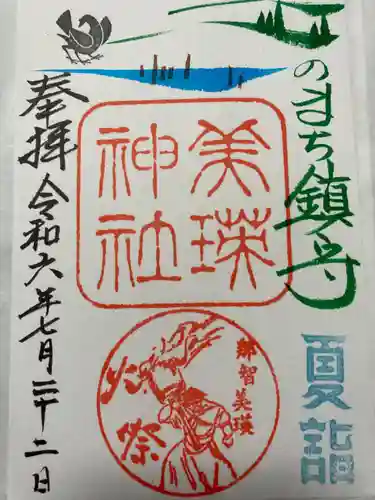 のまち鎮守
夏詣
美瑛
神社
那智美瑛
火祭
奉拝
令和六年七月二十二日